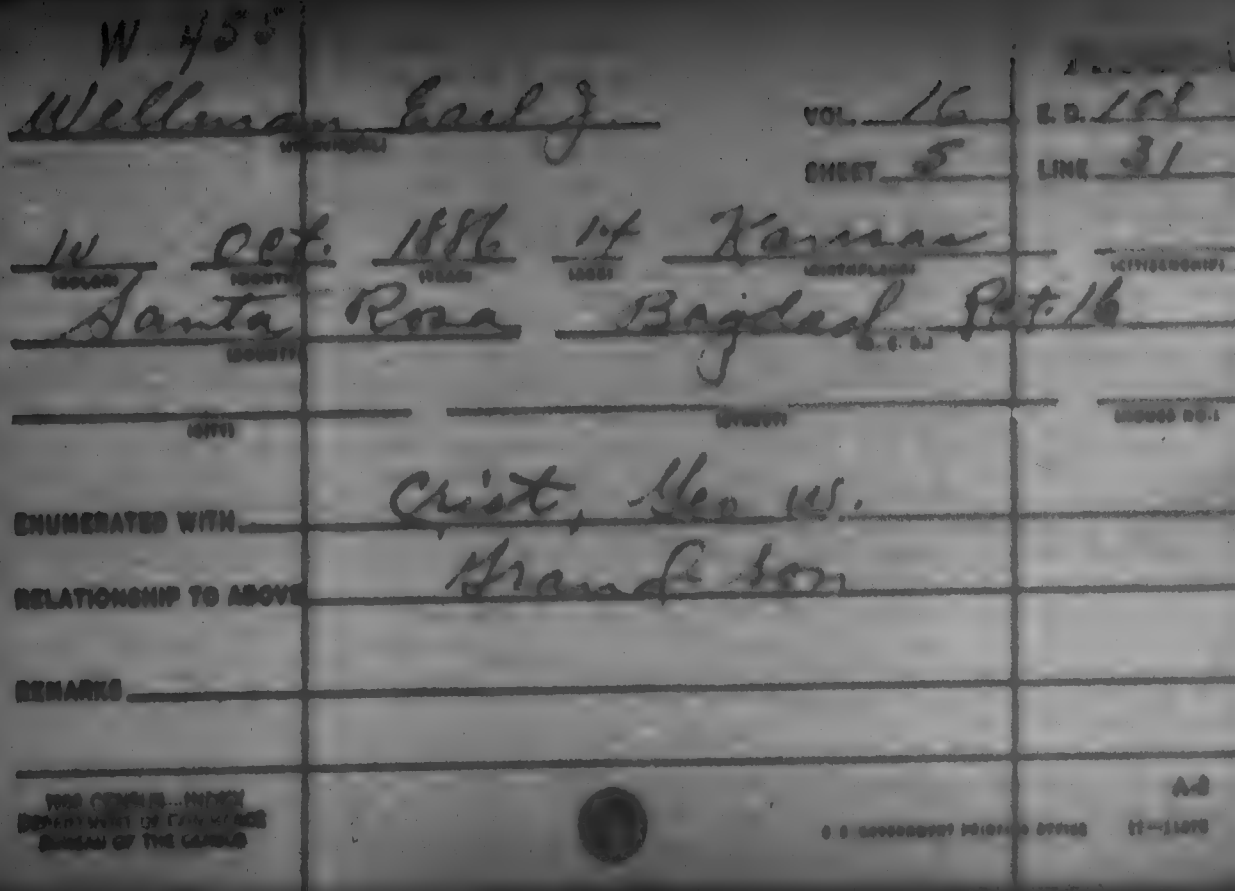 W 455
Wellman, Earl J. VOL. 16 E. D. 108
SHEET 5 LINE 31
W Oct. 1886 14 Kansas
(COLOR) (MONTH) (YEAR) (AGE) (BIRTHPLACE) (CITIZENSHIP)
Santa Rosa Bagdad Pct. 16
(COUNTY) (M. C. D.)
(CITY) (STREET) (HOUSE NO.)
ENUMERATED WITH Crist, Geo W.
RELATIONSHIP TO ABOVE Grand Son
REMARKS
A-3
1900 CENSUS—INDEX
DEPARTMENT OF COMMERCE
BUREAU OF THE CENSUS
U S GOVERNMENT PRINTING OFFICE